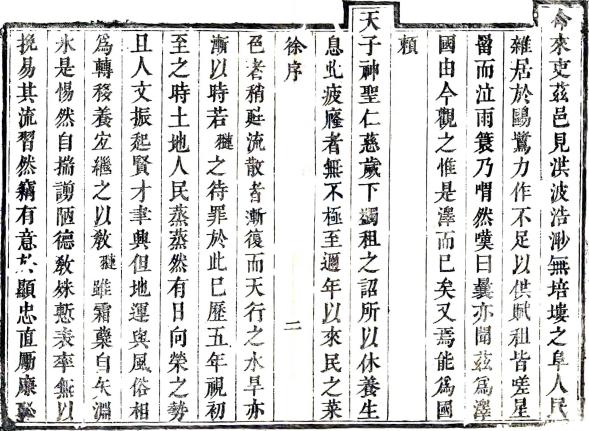 今來吏茲邑見洪波浩渺無培塿之阜人民
雜居於鷗鷺力作不足以供賦租皆嗟星
罶而泣雨簑乃喟然嘆曰曩亦聞茲為澤
國由今觀之惟是澤而已矣又焉能為國
賴
天子神聖仁慈歲下蠲租之詔所以休養生
息此疲癃者無不極至邇年以來民之菜
徐序
二
色者稍起流散者漸復而天行之水旱亦
漸以時若 之待罪於此已歷五年視初
至之時土地人民蒸蒸然有日向榮之勢
且人文振起賢才聿興但地運與風俗相
為轉移養宜繼之以敎 雖霜蘗自矢淵
氷是惕然自揣謭陋德敎殊慙表率無以
挽易其流習然竊有意於顯忠直勵廉